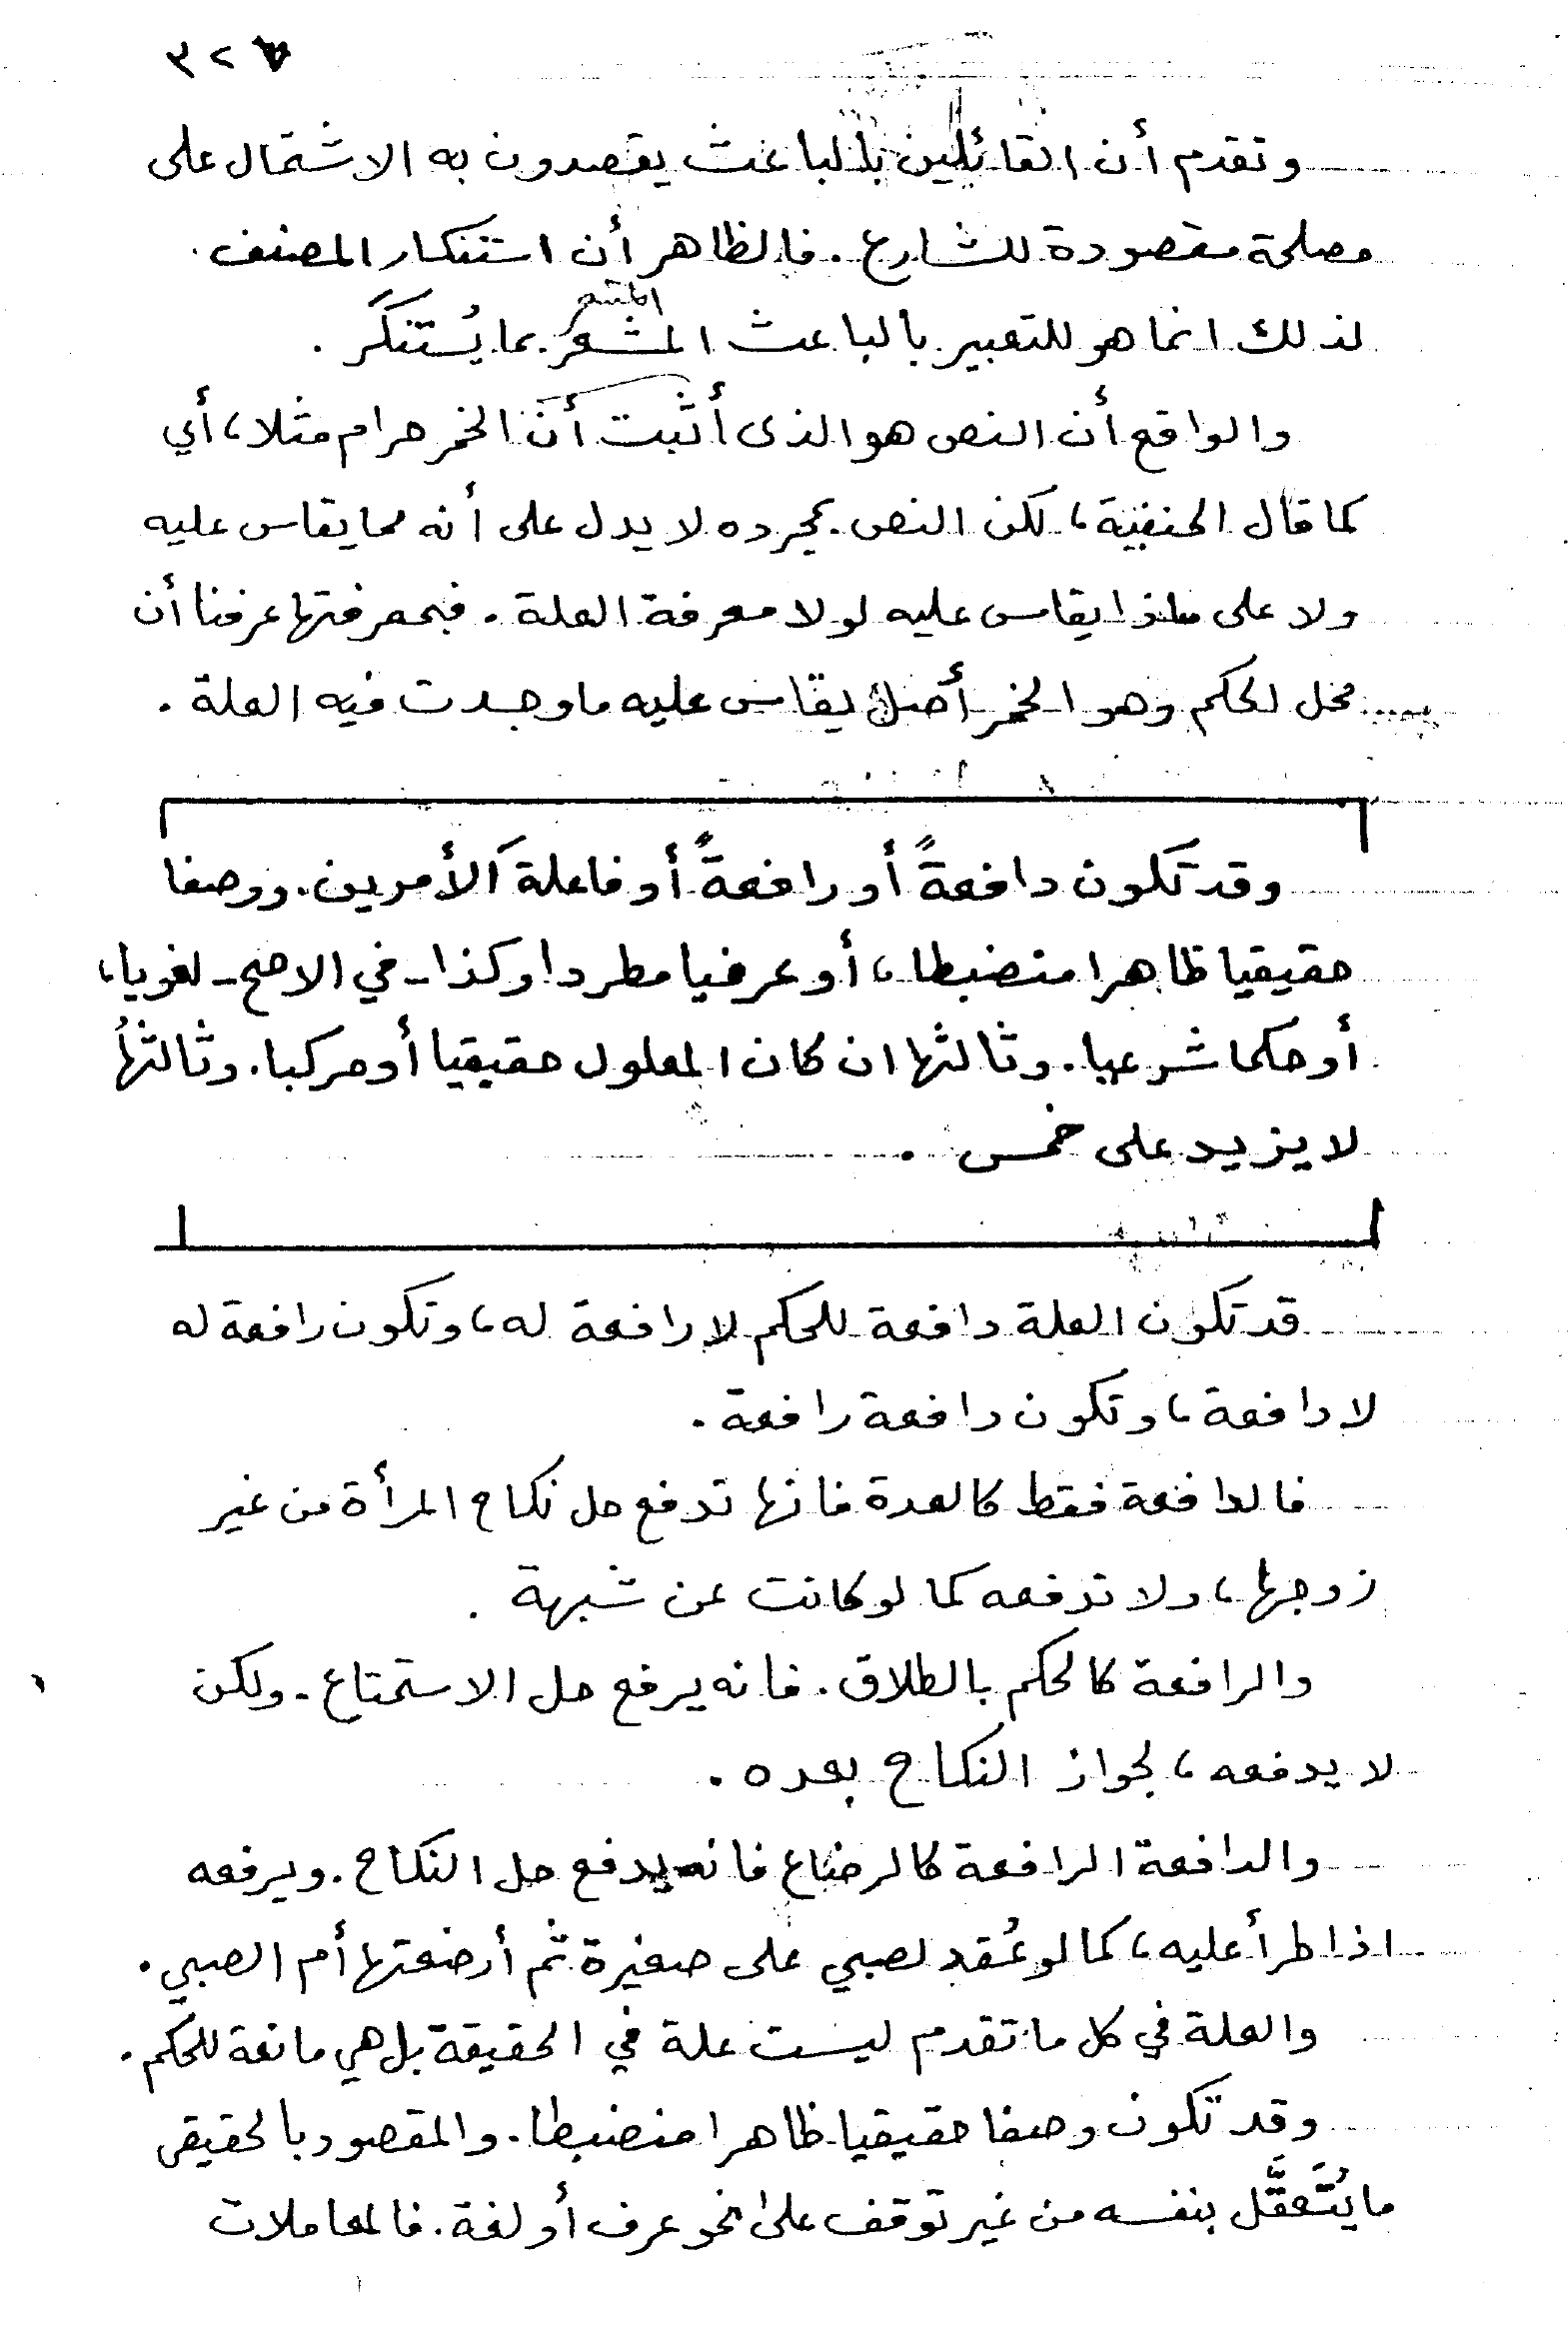 وتقدم أن القائلين بالباعث يقصدون به الاشتمال على
مصلحة مقصودة للشارع . فالظاهر أن استنكار المصنف
لذلك انما هو للتعبير بالباعث المشعر بما يُستنكَر .
والواقع أن النص هو الذى أثبت أن الخمر حرام مثلا، أي
كما قال الحنفية، لكن النص بمجرده لا يدل على أنه مما يقاس عليه
ولا على ماذا يقاس عليه لولا معرفة العلة . فبمعرفتها عرفنا أن
محل الحكم وهو الخمر أصل يقاس عليه ما وجدت فيه العلة .
وقد تكون دافعةً أو رافعةً أو فاعلةَ الأمرين. ووصفا
حقيقيا ظاهرا منضبطا، أو عرفيا مطردا وكذا - في الاصح - لغويا،
أو حكما شرعيا . وثالثها ان كان المعلول حقيقيا أو مركبا . وثالثهاُ
لا يزيد على خمس .
قد تكون العلة دافعة للحكم لا رافعة له، وتكون رافعة له
لا دافعة، وتكون دافعة رافعة .
فالدافعة فقط كالعدة فانها تدفع حل نكاح المرأة من غير
زوجها، ولا ترفعه كما لو كانت عن شبهة .
والرافعة كالحكم بالطلاق . فانه يرفع حل الاستمتاع . ولكن
لا يدفعه، لجواز النكاح بعده .
والدافعة الرافعة كالرضاع فانه يدفع حل النكاح . ويرفعه
اذا طرأ عليه، كما لو عُقد لصبي على صغيرة ثم أرضعتها أم الصبي .
والعلة في كل ما تقدم ليست علة في الحقيقة بل هي مانعة للحكم .
وقد تكون وصفا حقيقيا ظاهرا منضبطا . والمقصود بالحقيقى
ما يُتَعقَّل بنفسه من غير توقف على نحو عرف أو لغة . فالمعاملات